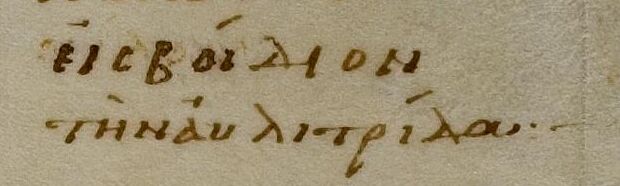 ἐις βοίδιον
τὴν ἀυλιτρίδα·